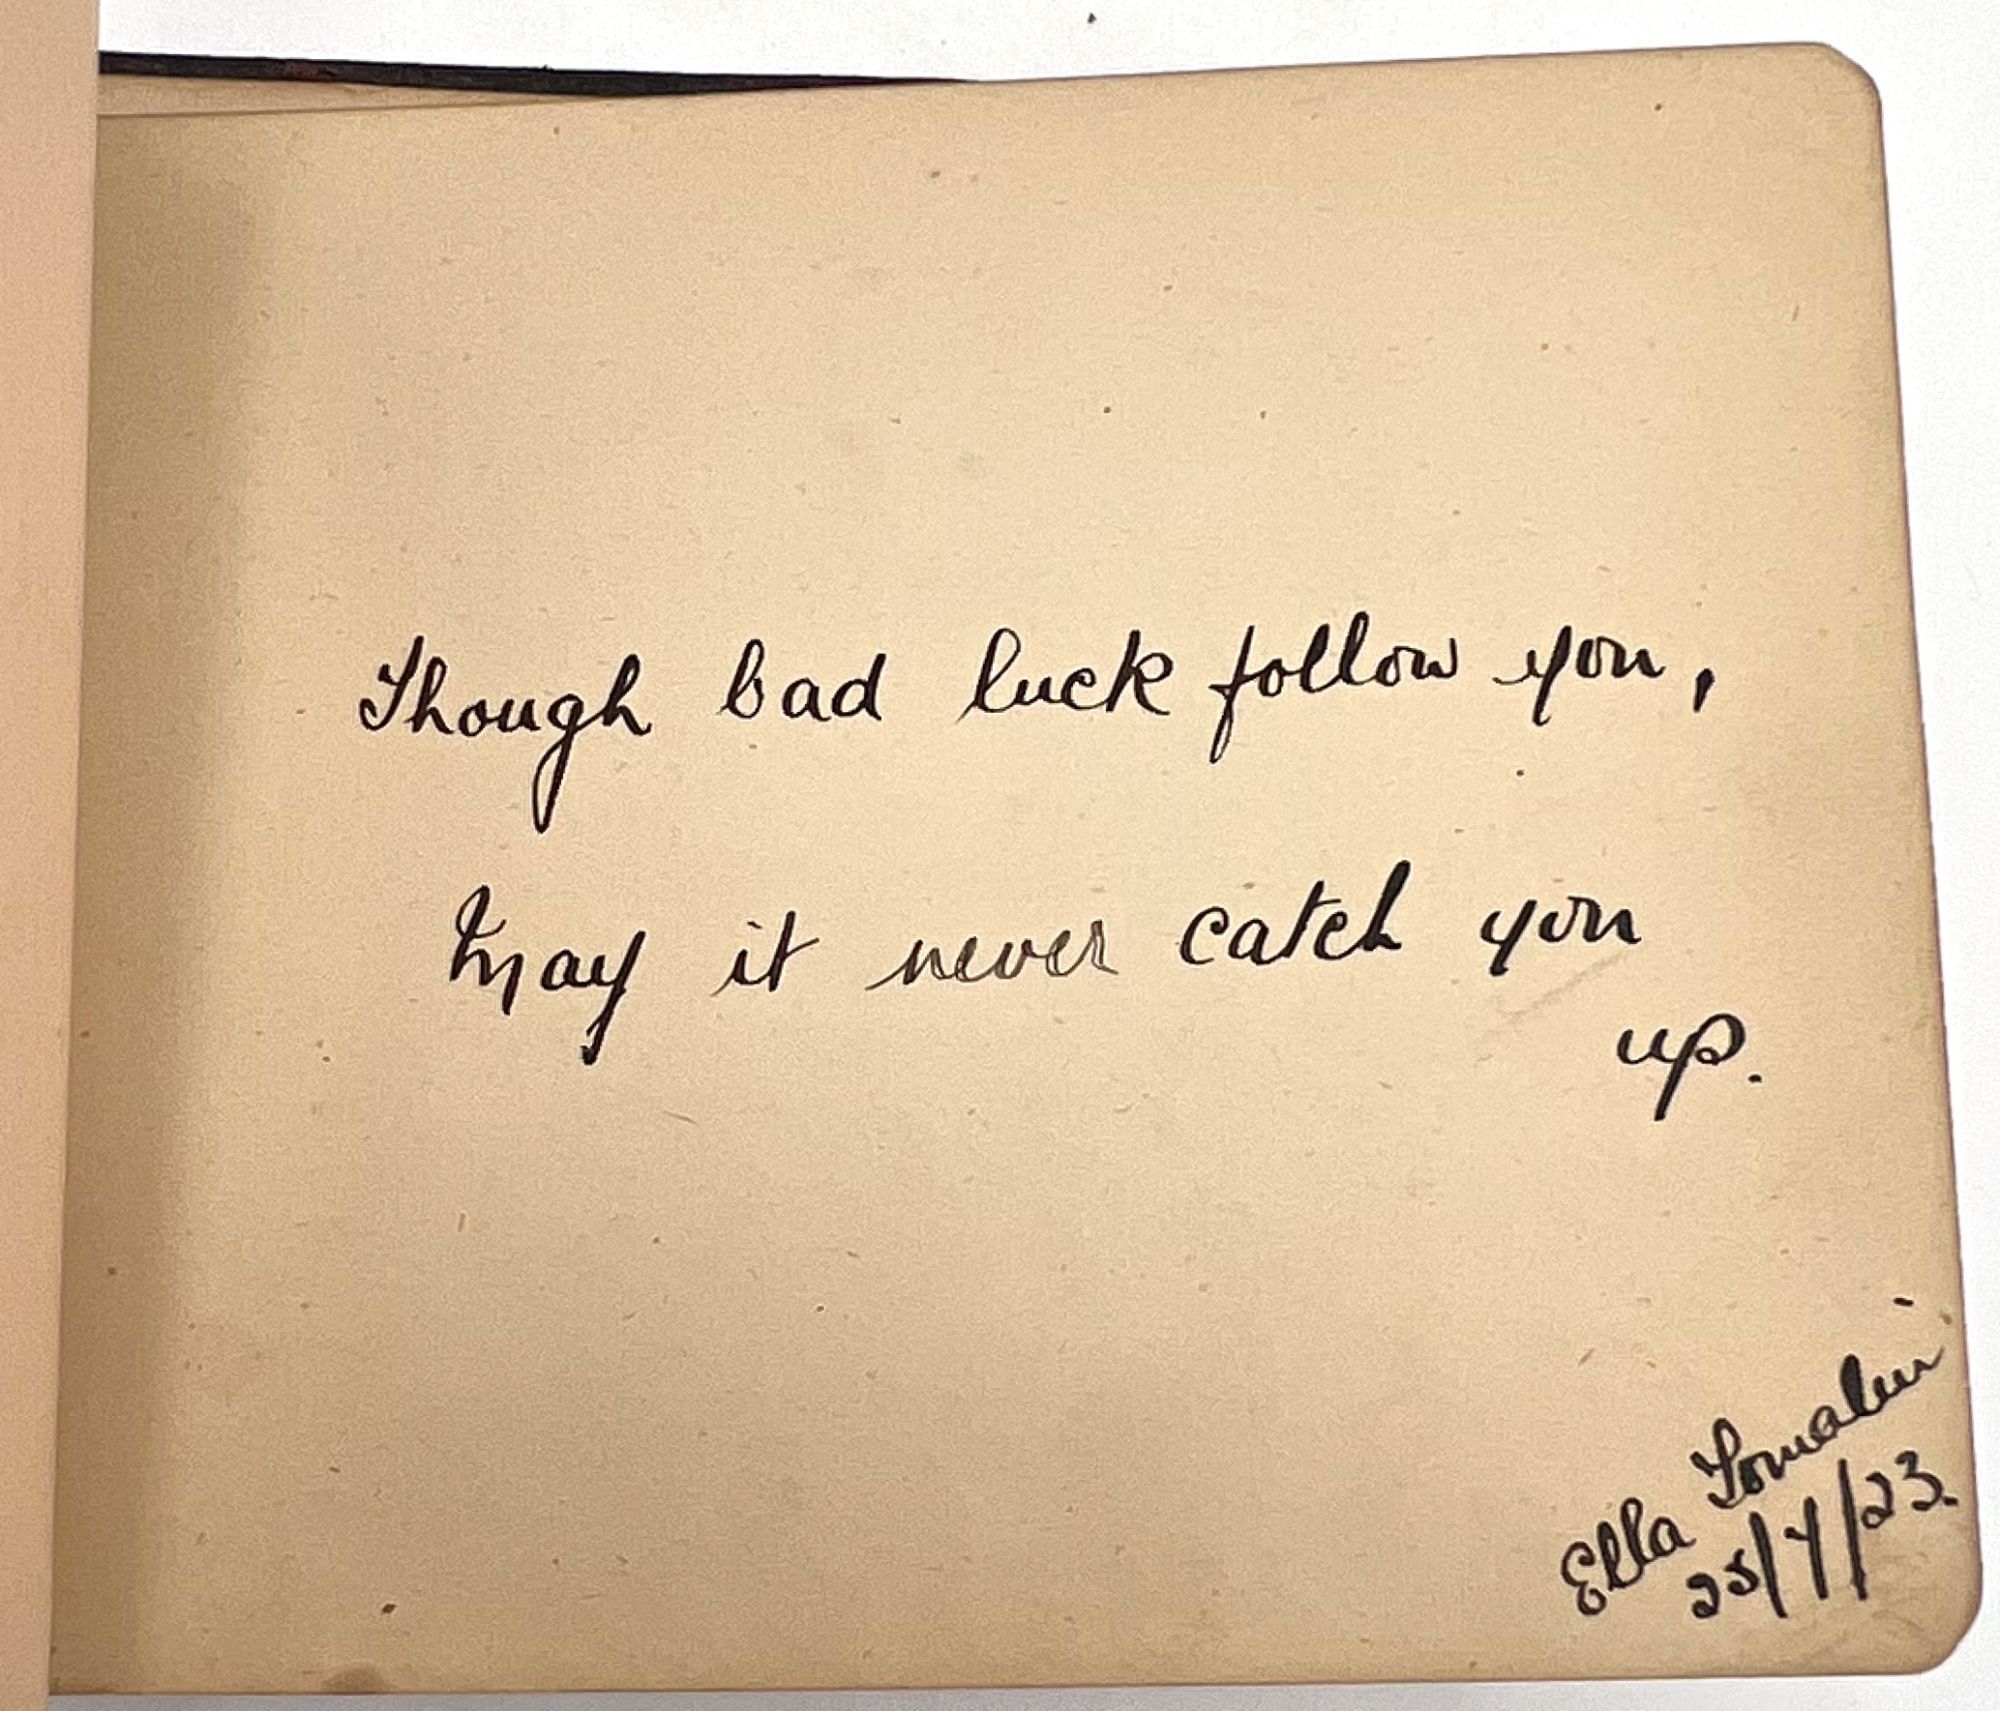 Though bad luck follow you,
May it never catch you
up.
Ella Tomalin
25/7/23.